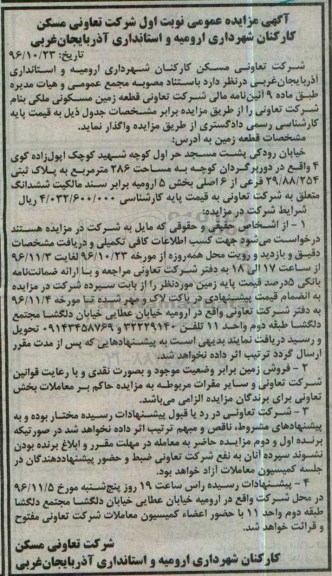 آگهی مزایده عمومی نوبت اول شرکت تعاونی مسکن
کارکنان شهرداری ارومیه و استانداری آذربایجان‌غربی
تاریخ: ۹۶/۱۰/۲۳
شرکت تعاونی مسکن کارکنان شهرداری ارومیه و استانداری
آذربایجان‌غربی درنظر دارد باستناد مصوبه مجمع عمومی و هیات مدیره
طبق ماده ۹ آئین‌نامه مالی شرکت تعاونی قطعه زمین مسکونی ملکی بنام
شرکت تعاونی را از طریق مزایده برابر مشخصات جدول ذیل به قیمت پایه
کارشناسی رسمی دادگستری از طریق مزایده واگذار نماید.
مشخصات قطعه زمین به آدرس:
خیابان رودکی پشت مسجد حر اول کوچه شهید کوچک ایول‌زاده کوی
۴ واقع در دوربرگردان کوچه به مساحت ۲۸۶ مترمربع به پلاک ثبتی
۲۹/۸۸/۲۵۴ فرعی از ۶ اصلی بخش ۵ ارومیه برابر سند مالکیت ششدانگ
متعلق به شرکت تعاونی به قیمت پایه کارشناسی ۴/۰۳۲/۶۰۰/۰۰۰ ریال
شرایط شرکت در مزایده:
۱ - از اشخاص حقیقی و حقوقی که مایل به شرکت در مزایده هستند
درخواست می‌شود جهت کسب اطلاعات کافی تکمیلی و دریافت مشخصات
دقیق و بازدید و رویت محل همه‌روزه از مورخه ۹۶/۱۰/۲۳ لغایت ۹۶/۱۱/۳
از ساعت ۱۷ الی ۱۸ به دفتر شرکت تعاونی مراجعه و با ارائه ضمانت‌نامه
بانکی ۵درصد قیمت پایه زمین موردنظر را از بابت سپرده شرکت در مزایده
به انضمام قیمت پیشنهادی در پاکت لاک و مهر شده تا مورخه ۹۶/۱۱/۴
به دفتر شرکت تعاونی واقع در ارومیه خیابان عطایی خیابان دلگشا مجتمع
دلگشا طبقه دوم واحد ۱۱ تلفن ۳۲۲۲۹۱۴۰ و ۰۹۱۴۳۴۵۸۷۶۹ تحویل
و رسید دریافت نمایند بدیهی است به پیشنهادهایی که پس از مدت مقرر
ارسال گردد ترتیب اثر داده نخواهد شد.
۲ - فروش زمین برابر وضعیت موجود و بصورت نقدی و با رعایت قوانین
شرکت تعاونی و سایر مقررات مربوطه به مزایده حاکم بر معاملات بخش
تعاونی برای برندگان مزایده الزامی می‌باشد.
۳ - شرکت تعاونی در رد یا قبول پیشنهادات رسیده مختار بوده و به
پیشنهادهای مشروط، ناقص و مبهم ترتیب اثر داده نخواهد شد در صورتیکه
برنده اول و دوم مزایده حاضر به معامله در مهلت مقرر و ابلاغ برنده بودن
نشوند سپرده آنان به نفع شرکت تعاونی ضبط و حضور پیشنهاددهندگان در
جلسه کمیسیون معاملات آزاد خواهد بود.
۴ - پیشنهادات رسیده راس ساعت ۱۹ روز پنج‌شنبه مورخ ۹۶/۱۱/۵
در محل شرکت واقع در ارومیه خیابان عطایی خیابان دلگشا مجتمع دلگشا
طبقه دوم واحد ۱۱ با حضور اعضاء کمیسیون معاملات شرکت تعاونی مفتوح
و قرائت خواهد شد.
شرکت تعاونی مسکن
کارکنان شهرداری ارومیه و استانداری آذربایجان‌غربی